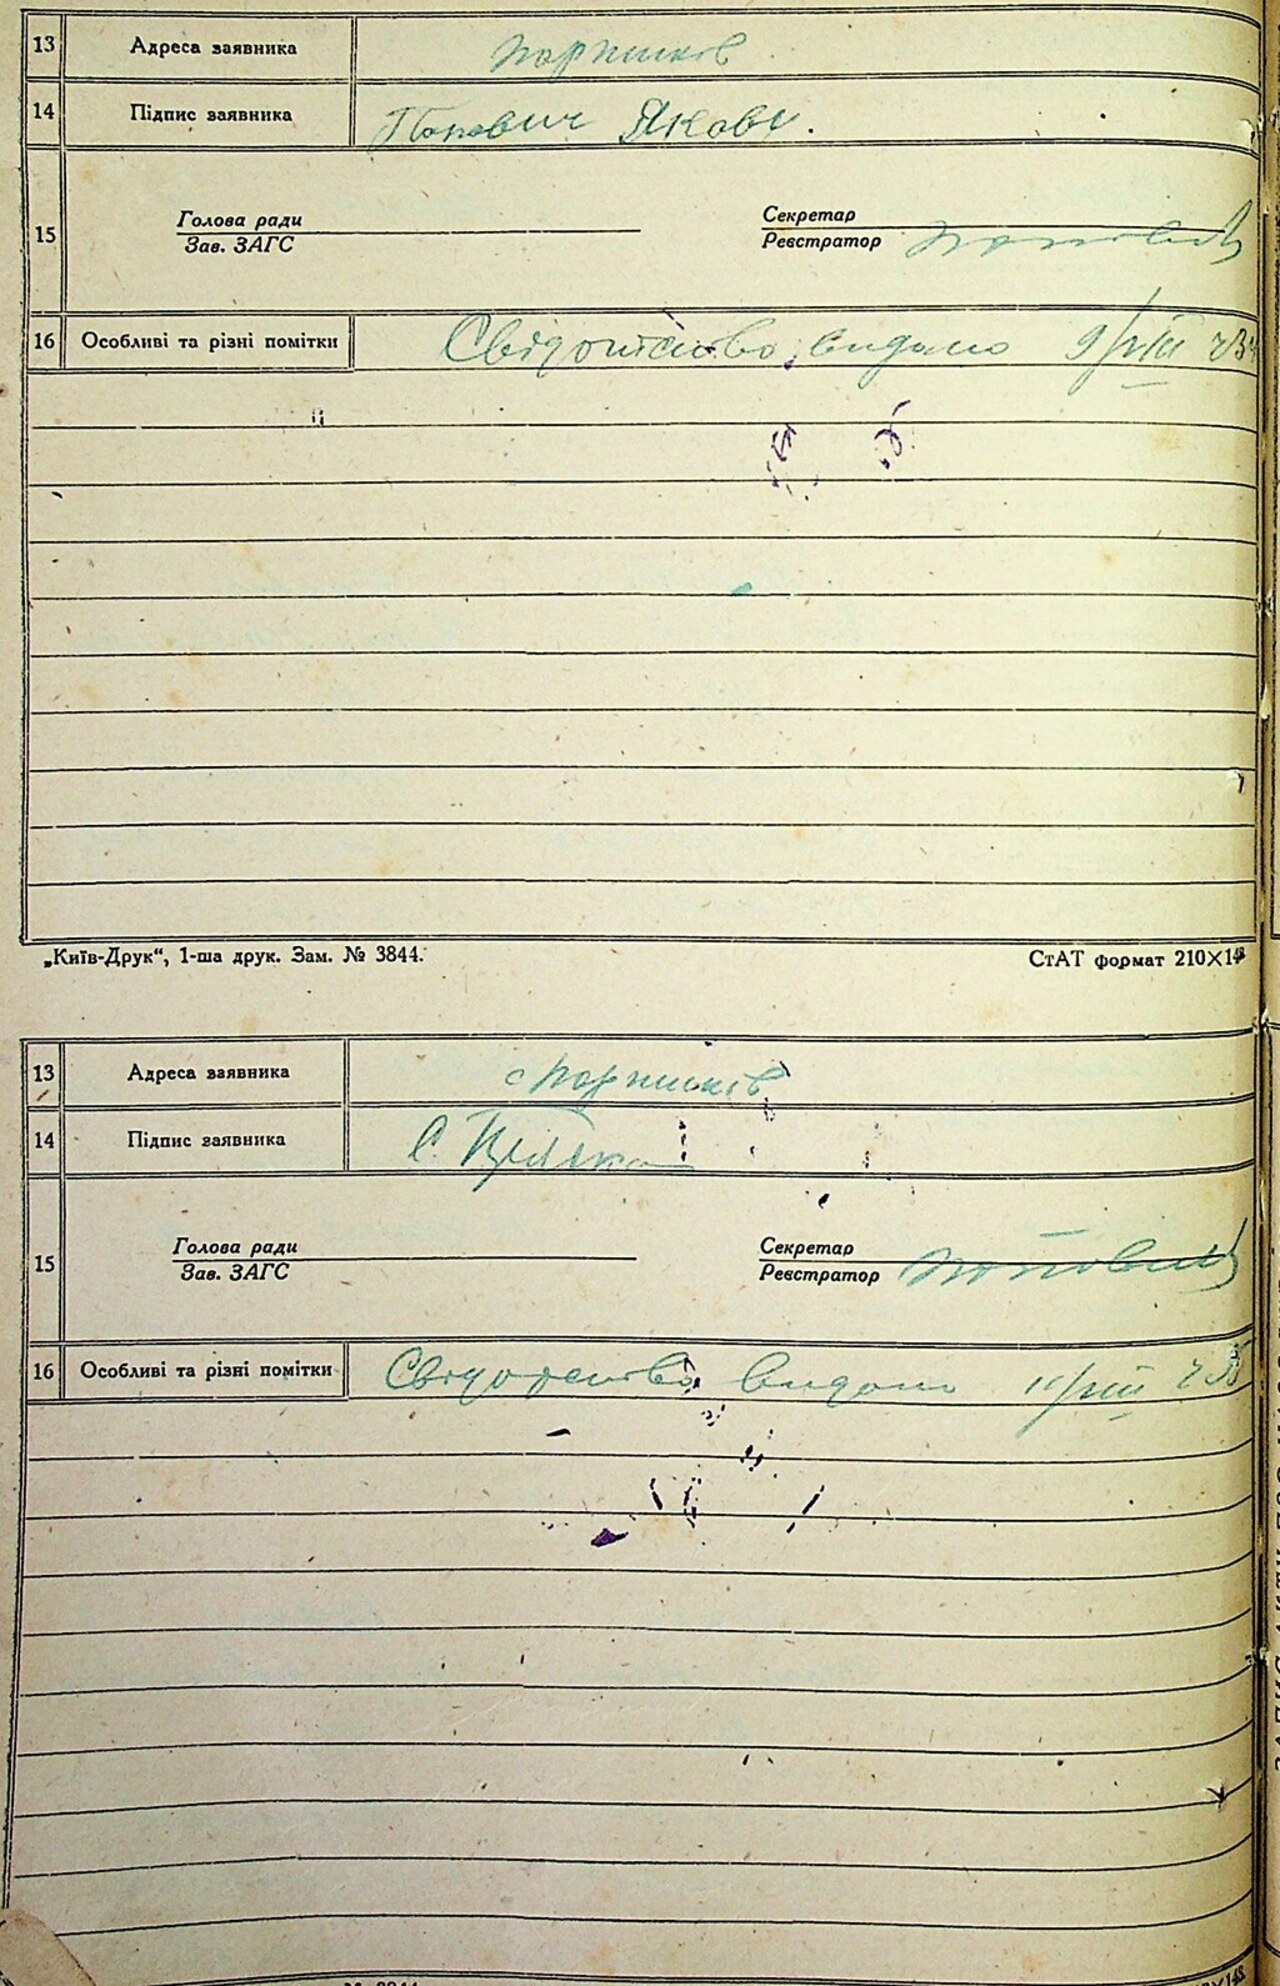 13 Адреса заявника Паришків
14 Підпис заявника Попович Яков
15 Голова ради Секретар
Зав. ЗАГС Реєстратор Попович
16 Особливі та різні помітки Свідотство видано 9/VIII
„Київ-Друк“, 1-ша друк. Зам. № 3844.
СтАТ формат 210×148
13 Адреса заявника с Паришків
14 Підпис заявника С.
15 Голова ради Секретар
Зав. ЗАГС Реєстратор Попович
16 Особливі та різні помітки Свідотство видано 11/VIII